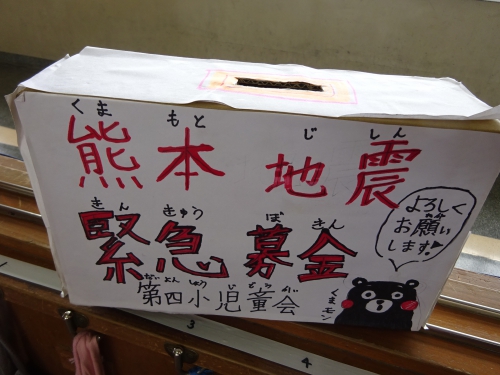 くま もと じ しん
熊本 地震
きん きゅう ぼ きん
緊急 募金
だいよんしょう じどうかい
第四小児童会
よろしく
お願いします!
くまモン
3
4